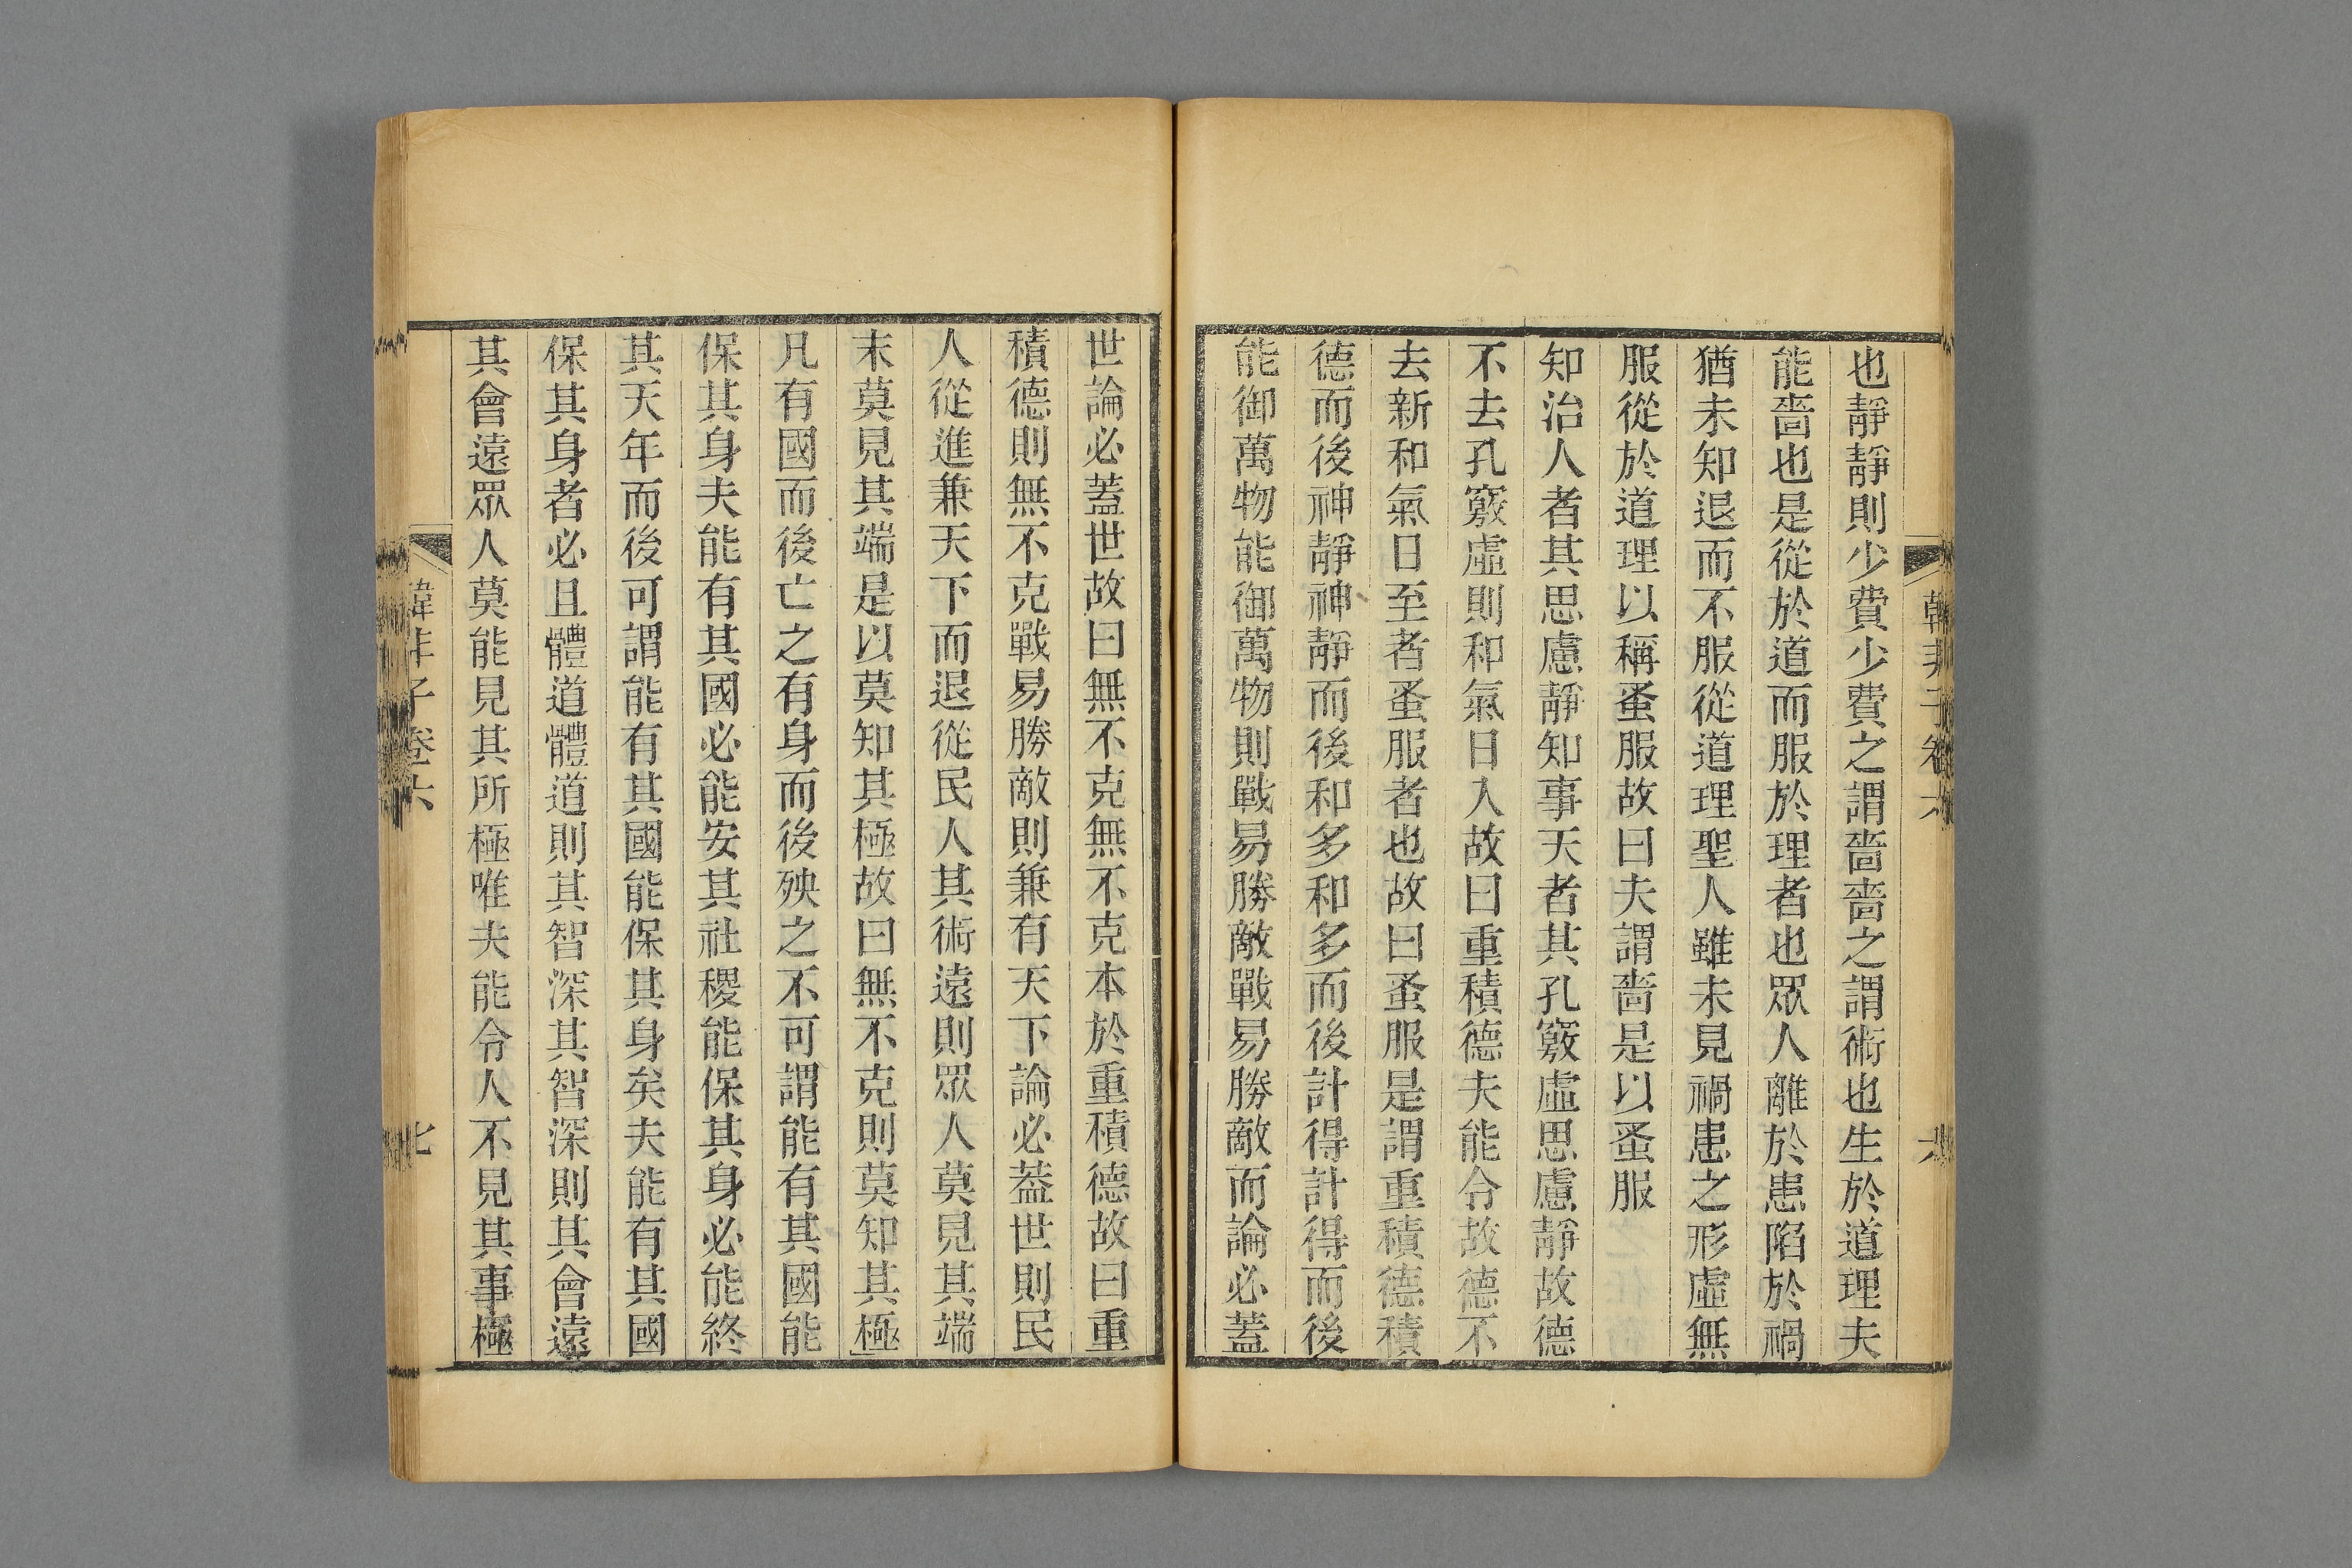 也靜靜則少費少費之謂嗇嗇之謂術也生於道理夫
能嗇也是從於道而服於理者也眾人離於患陷於禍
猶未知退而不服從道理聖人雖未見禍患之形虛無
服從於道理以稱蚤服故曰夫謂嗇是以蚤服
知治人者其思慮靜知事天者其孔竅虛思慮靜故德
不去孔竅虛則和氣日入故曰重積德夫能令故德不
去新和氣日至者蚤服者也故曰蚤服是謂重積德積
德而後神靜神靜而後和多和多而後計得計得而後
能御萬物能御萬物則戰易勝敵戰易勝敵而論必蓋
韓非子卷六 六
世論必蓋世故曰無不克無不克本於重積德故曰重
積德則無不克戰易勝敵則兼有天下論必蓋世則民
人從進兼天下而退從民人其術遠則眾人莫見其端
末莫見其端是以莫知其極故曰無不克則莫知其極
凡有國而後亡之有身而後殃之不可謂能有其國能
保其身夫能有其國必能安其社稷能保其身必能終
其天年而後可謂能有其國能保其身矣夫能有其國
保其身者必且體道體道則其智深其智深則其會遠
其會遠眾人莫能見其所極唯夫能令人不見其事極
韓非子卷六 七